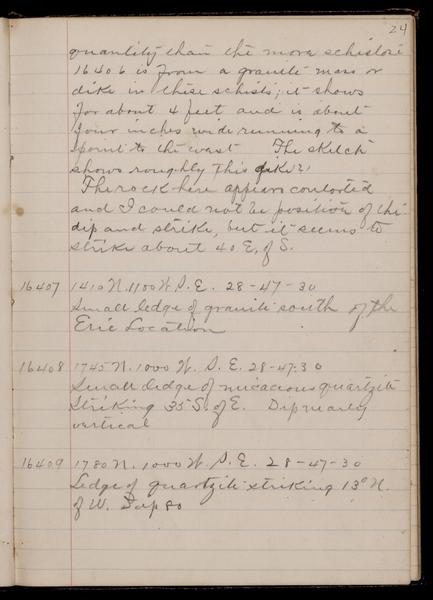 24
quantity than the more schistose
16406 is from a granite mass or
dike in these schists; it shows
for about 4 feet and is about
four inches wide running to a
point to the west The sketch
shows roughly this dike
The rock here appears contorted
and I could not be position of the
dip and strike, but it seems to
strike about 40 E. of S.
16407 1410 N. 1100 W. S.E. 28-47-30
Small ledge of granite south of the
Eric Location
16408 1745 N. 1000 W. S.E. 28-47-30
Small ledge of micacious quartzite
Striking 35 S. of E. Dip nearly
vertical
16409 1780 N. 1000 W. S.E. 28-47-30
Ledge of quartzite striking 13° N.
of W. Dip 80